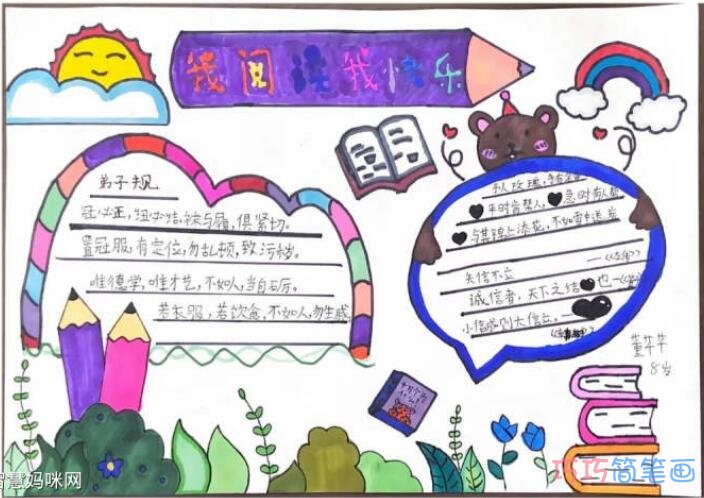 我阅读我快乐
弟子规
冠必正,纽必结,袜与履,俱紧切。
置冠服,有定位,勿乱顿,致污秽。
唯德学,唯才艺,不如人,当自砺。
若衣服,若饮食,不如人,勿生戚
予人玫瑰,
平时肯帮人,急时有人帮
与其锦上添花,不如雪中送炭
失信不立 —《左传》
诚信者,天下之结也—
小信成则大信立。—
8岁
十万个为什么
智慧妈咪网
巧巧简笔画